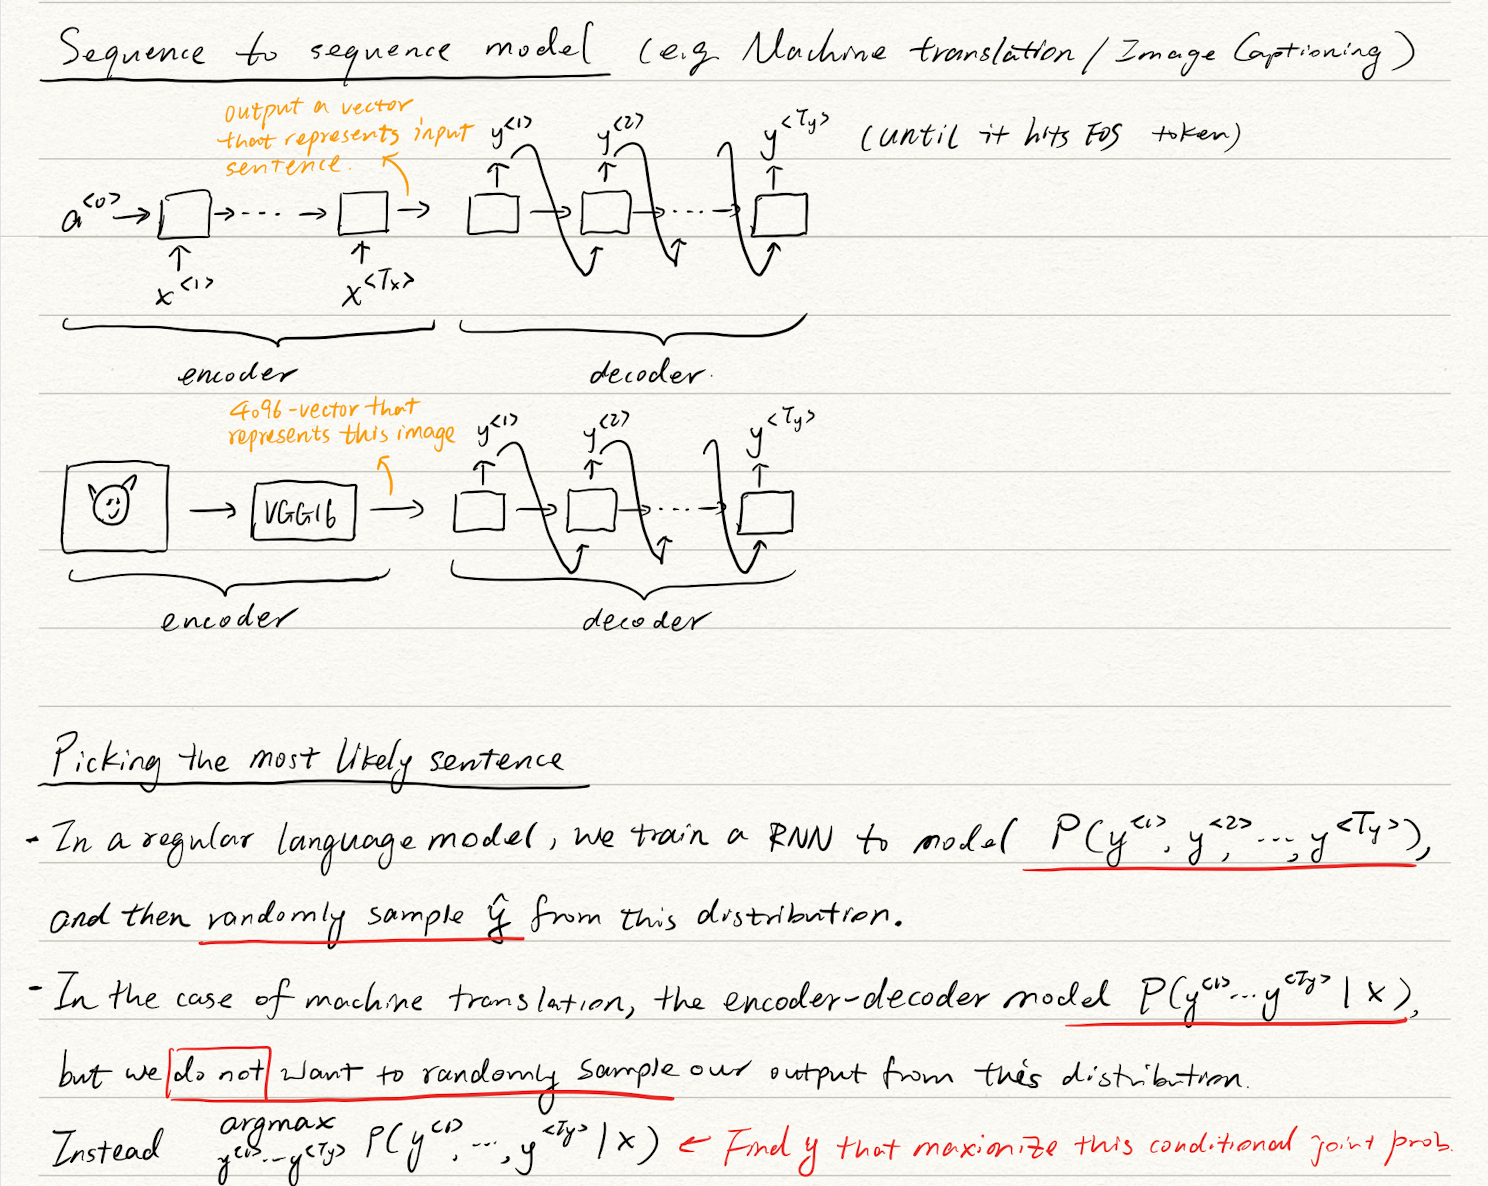 Sequence to sequence model (e.g. Machine translation / Image Captioning)
output a vector
that represents input
sentence.
y<1> y<2> y<Ty> (until it hits EOS token)
a<0>
x<1> x<Tx>
encoder decoder.
4096-vector that
represents this image
y<1> y<2> y<Ty>
VGG16
encoder decoder
Picking the most likely sentence
- In a regular language model, we train a RNN to model P(y<1>, y<2>, ..., y<Ty>),
and then randomly sample ŷ from this distribution.
- In the case of machine translation, the encoder-decoder model P(y<1>...y<Ty> | x),
but we do not want to randomly sample our output from this distribution.
Instead argmax y<1>...y<Ty> P(y<1>, ..., y<Ty> | x) ← Find y that maxionize this conditional joint prob.